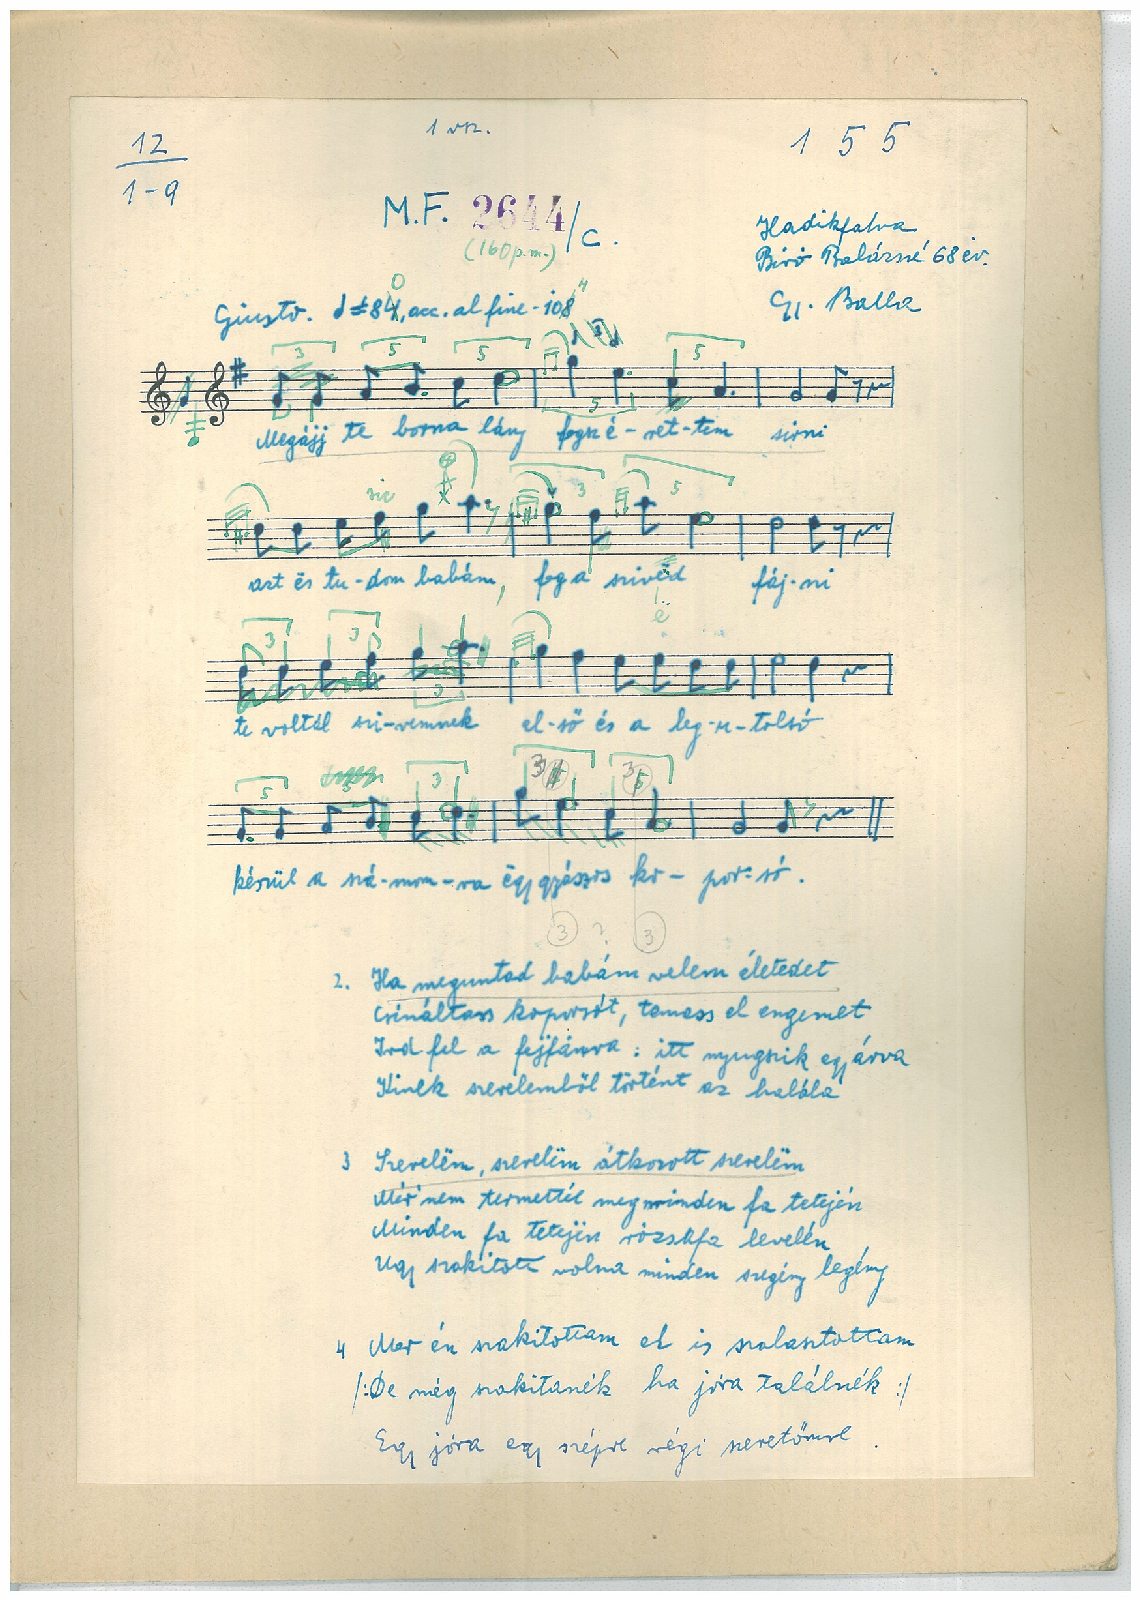 12
1-9
1 vsz.
1 5 5
M.F. 2644/c.
(160 p.m.)
Hadikfalva
Biró Balázsné 68 év.
Gy. Balla
Giusto. =84, acc. al fine - 108
3 5 5 5 5
Megájj te borna lány fogsz é-ret-tem sirni
sic 3 5
azt és tu-dom babám, fog a szivëd fáj-ni
ë
3 3 3
te voltál szi-vemnek el-ső és a leg-u-tolsó
5 3 3 3
készül a szá-mom-ra ëgy gyászos ko- por-só.
3 ? 3
2. Ha meguntad babám velem életedet
Csináltass koporsót, temess el engemet
Ird fel a fejfámra: itt nyugszik egy árva
Kinek szerelemből történt az halála
3 Szerelëm, szerelëm átkozott szerelëm
Mér' nem termettél meg minden fa tetején
Minden fa tetején rózsafa levelén
Ugy szakitott volna minden szegény legény
4 Mer én szakitottam el is szalasztottam
/: De még szakitanék ha jóra találnék :/
Egy jóra egy szépre régi szeretőmre.